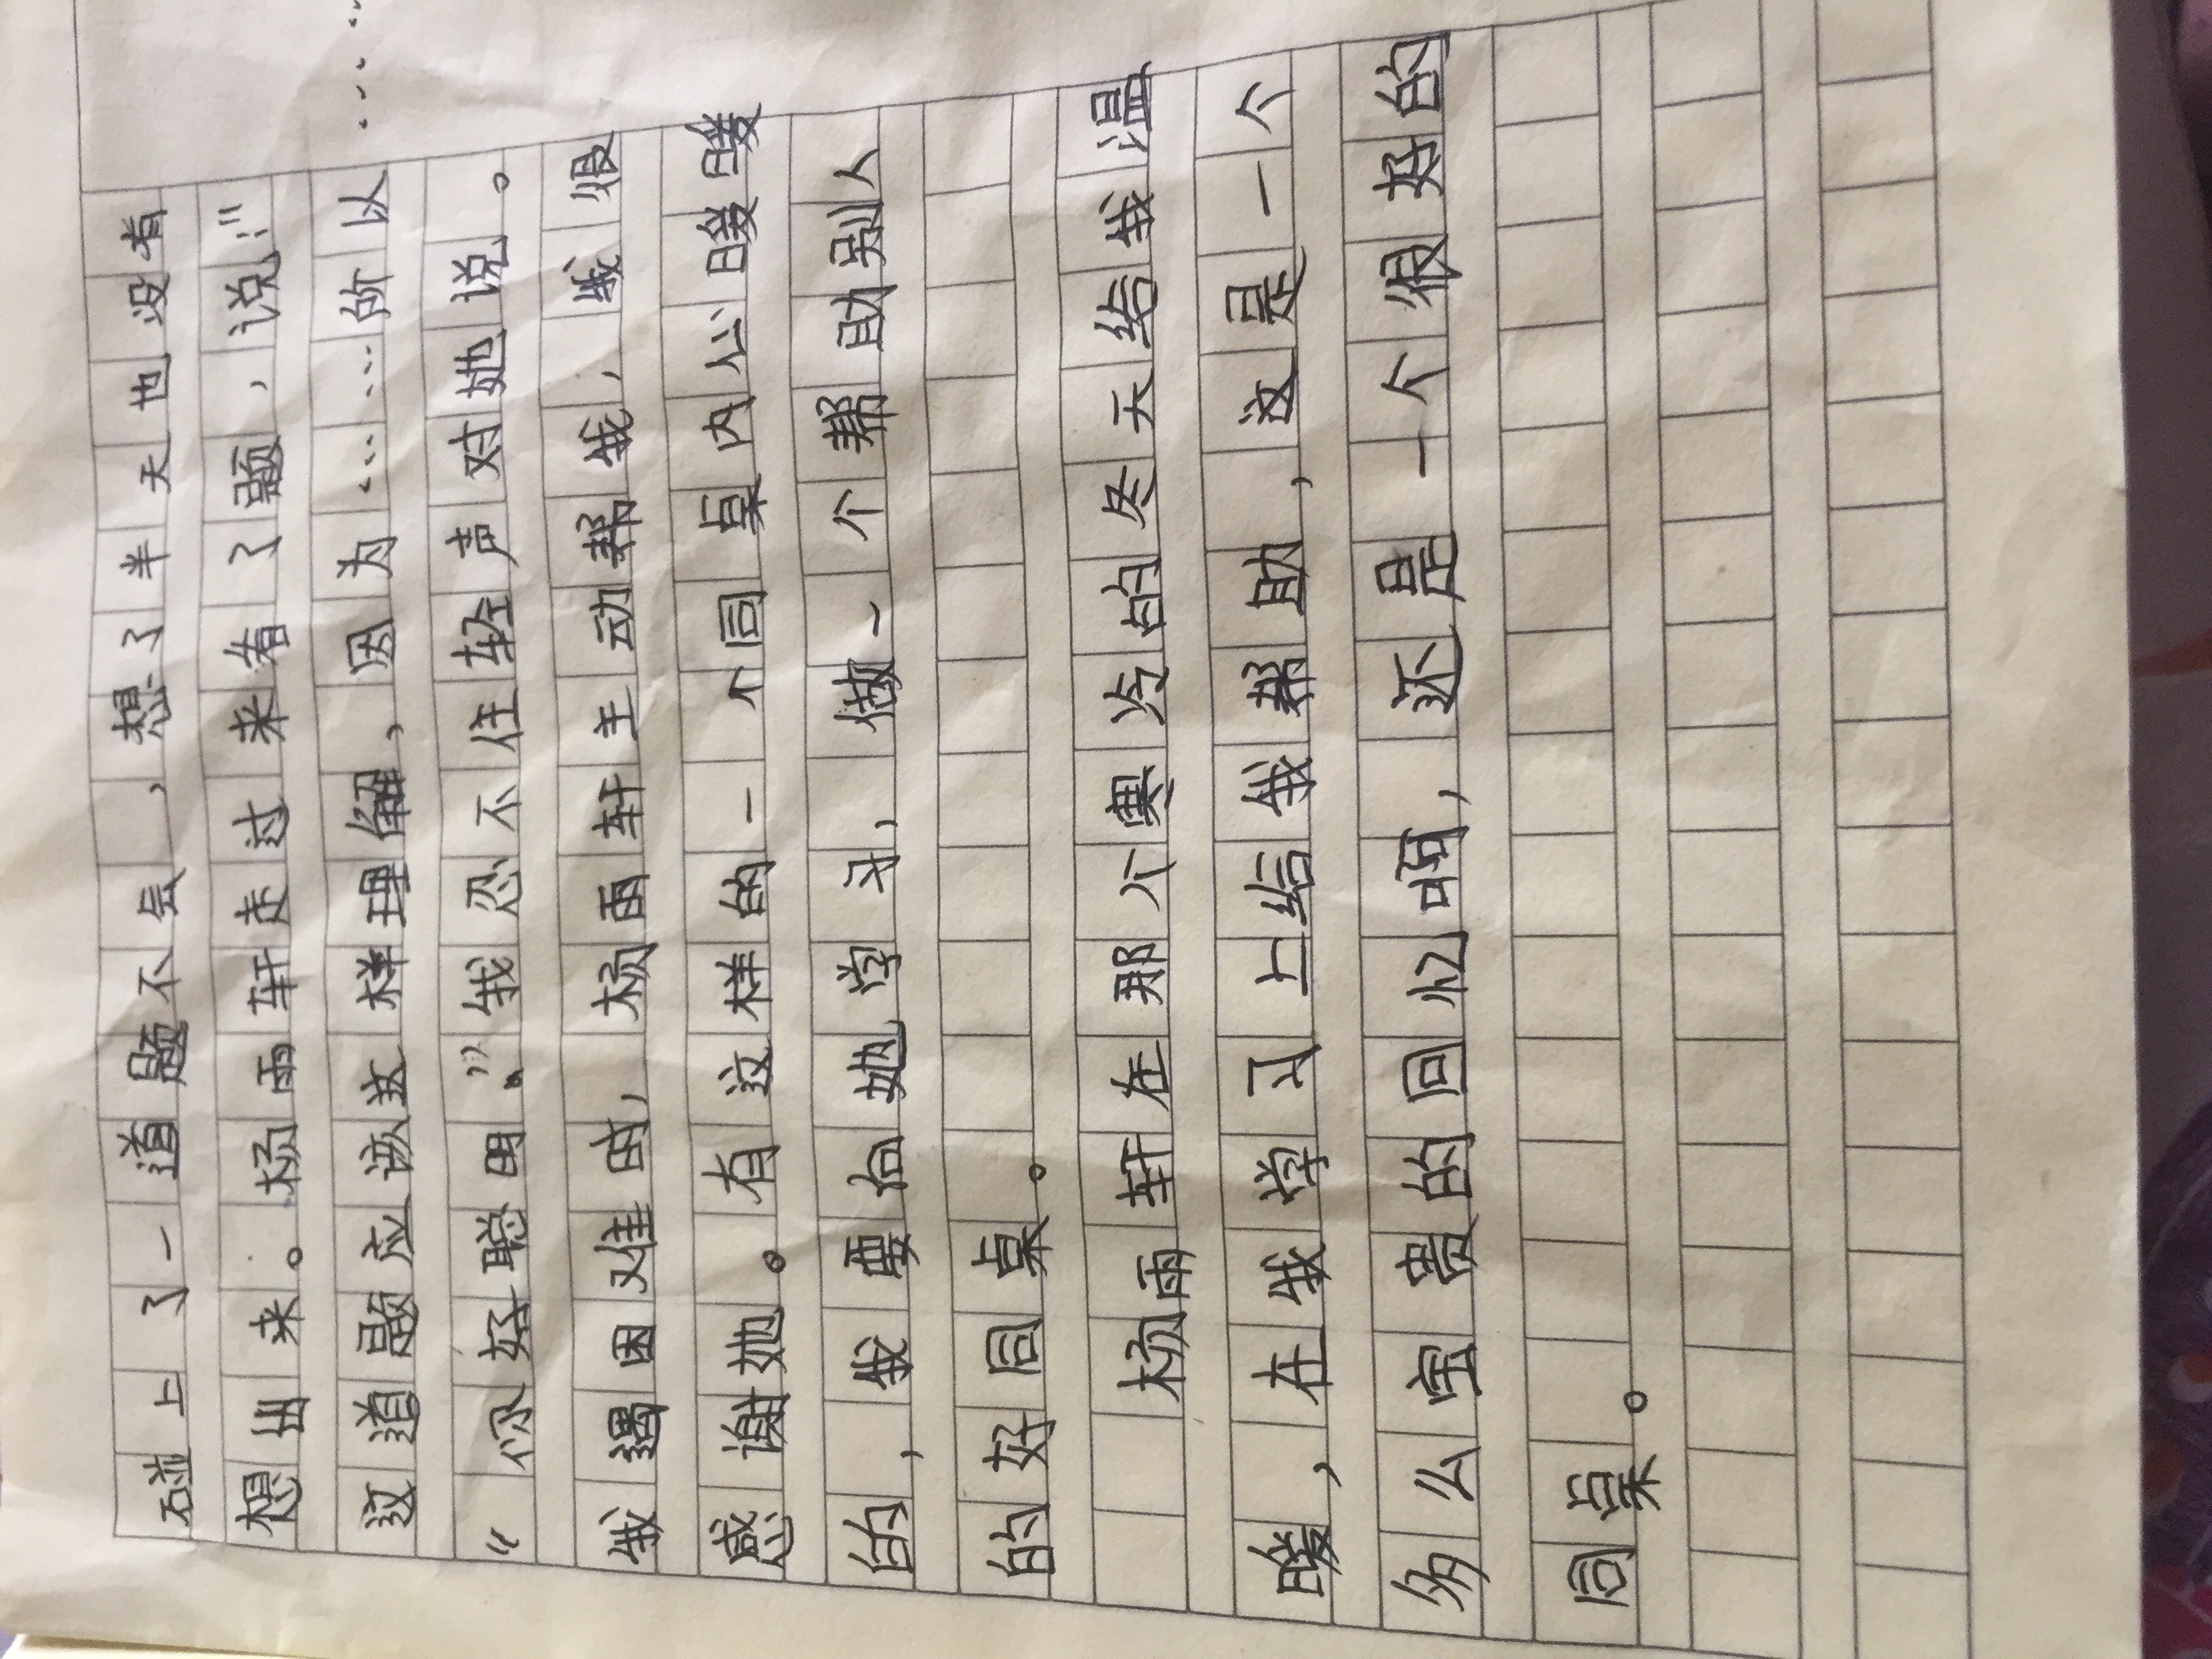 碰上了一道题不会，想了半天也没有
想出来。杨雨轩走过来看了题，说：“
这道题应该这样理解，因为……所以……
“你好聪明。”我忍不住轻声对她说。
我遇困难时，杨雨轩主动帮我，我很
感谢她。有这样的一个同桌内心暖暖
的，我要向她学习，做一个帮助别人
的好同桌。
杨雨轩在那个寒冷的冬天给我温
暖，在我学习上给我帮助，这是一个
多么宝贵的回忆啊，还是一个很好的
同桌。